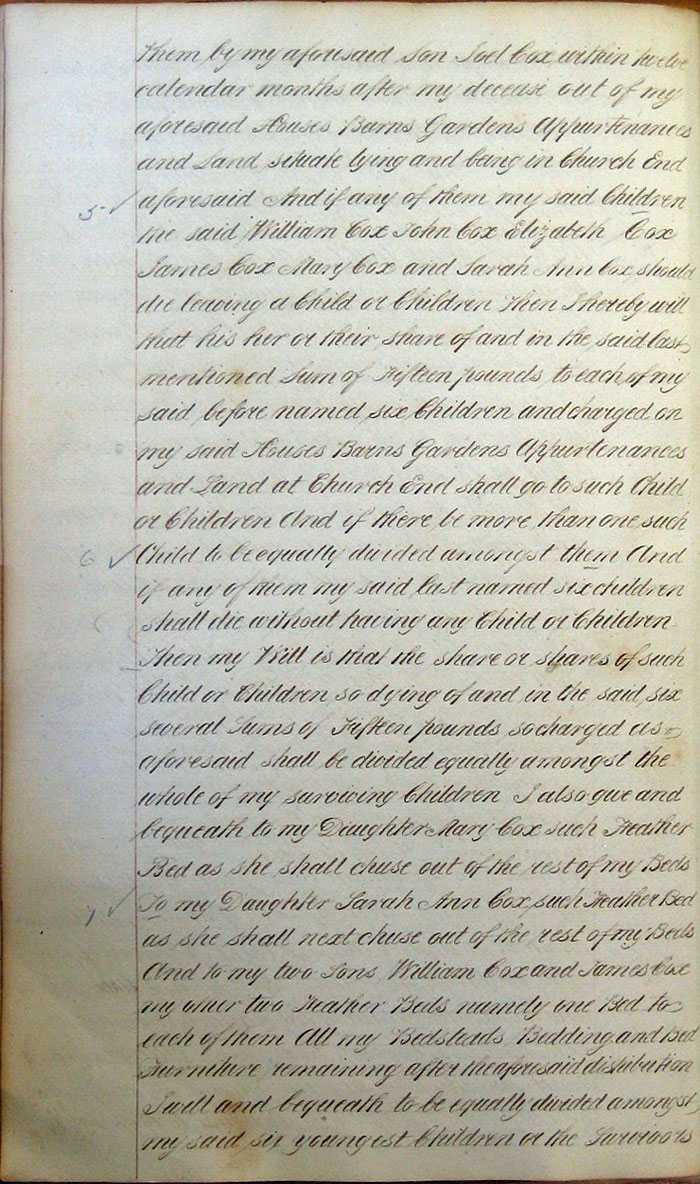 them by my aforesaid Son Joel Cox within twelve
calendar months after my decease out of my
aforesaid Houses Barns Gardens Appurtenances
and Land situate lying and being in Church End
5 aforesaid And if any of them my said Children
the said William Cox John Cox Elizabeth Cox
James Cox Mary Cox and Sarah Ann Cox should
die leaving a Child or Children Then I hereby will
that his her or their share of and in the said last
mentioned Sum of Fifteen pounds to each of my
said before named six Children and charged on
my said Houses Barns Gardens Appurtenances
and Land at Church End shall go to such Child
or Children And if there be more than one such
6 Child to be equally divided amongst them And
if any of them my said last named six children
shall die without having any Child or Children
Then my Will is that the share or shares of such
Child or Children so dying of and in the said six
several Sums of Fifteen pounds so charged as
aforesaid shall be divided equally amongst the
whole of my surviving Children I also give and
bequeath to my Daughter Mary Cox such Feather
Bed as she shall chuse out of the rest of my Beds
7 To my Daughter Sarah Ann Cox such Feather Bed
as she shall next chuse out of the rest of my Beds
And to my two Sons William Cox and James Cox
my other two Feather Beds namely one Bed to
each of them All my Bedsteads Bedding and Bed
Furniture remaining after the aforesaid distribution
I will and bequeath to be equally divided amongst
my said six youngest Children or the Survivors